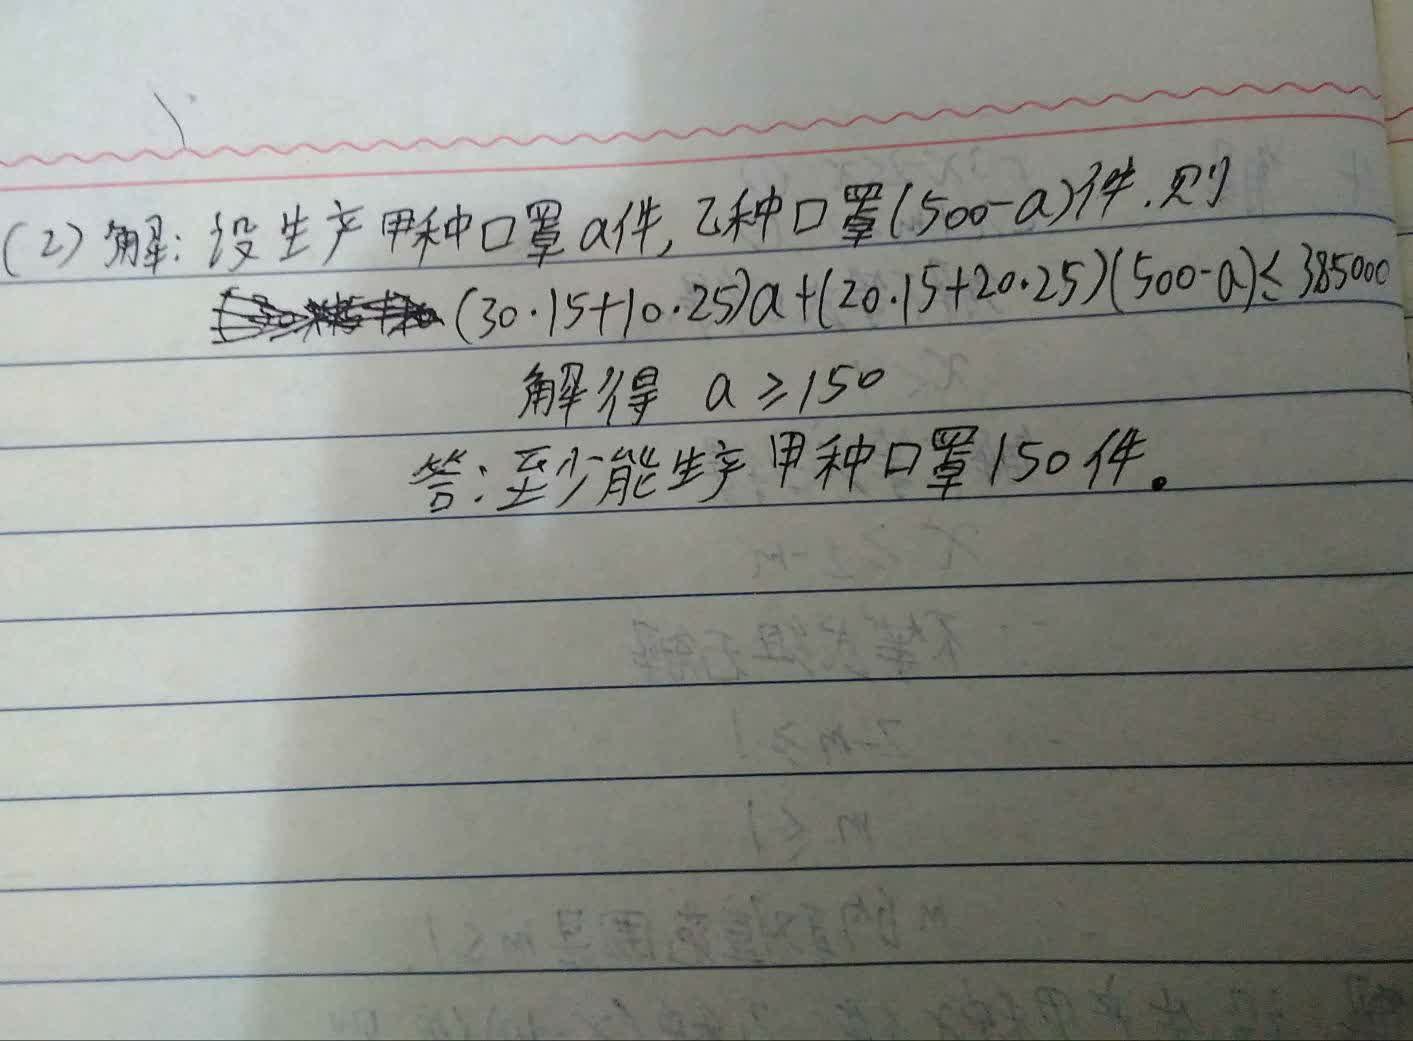 (2)解:设生产甲种口罩a件,乙种口罩(500-a)件.则
(30·15+10·25)a+(20·15+20·25)(500-a)≤385000
解得 a≥150
答:至少能生产甲种口罩150件。